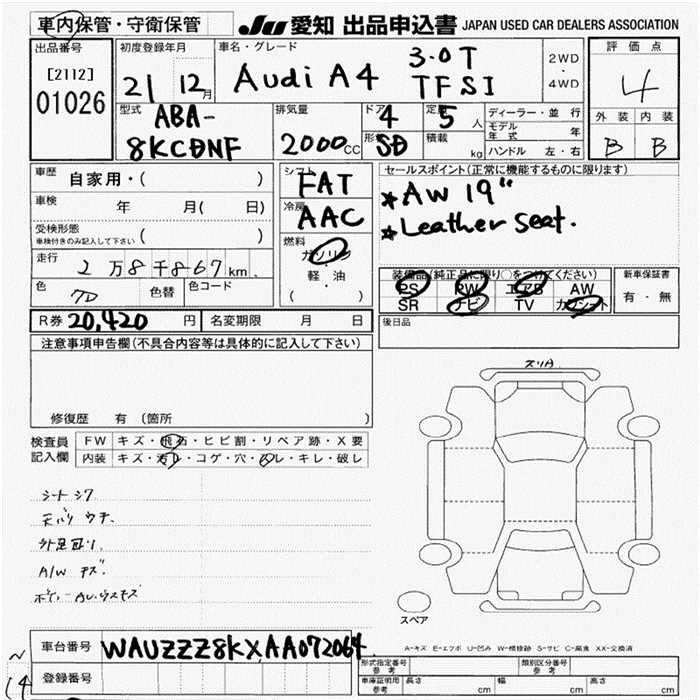 車内保管・守衛保管 JU 愛知 出品申込書 JAPAN USED CAR DEALERS ASSOCIATION
出品番号
[2112]
01026
初度登録年月
21 12月
車名・グレード
Audi A4 3.0T
TFSI
2WD
・
4WD
評価点
4
外装 内装
B B
型式
ABA-
8KCDNF
排気量
2000cc
ドア 4
定員 5人
SD
積載 kg
ディーラー・並行
モデル年式 年
ハンドル 左・右
車歴 自家用・( )
車検 年 月( 日)
受検形態
車検付きのみ記入して下さい ( )
走行 2万8千867km
色 色替 色コード
シフト
FAT
冷房
AAC
燃料
ガソリン
軽・油
( )
セールスポイント(正常に機能するものに限ります)
*AW 19"
*Leather seat.
装備品(純正品に限り○をつけてください)
PS PW エアB AW
SR ナビ TV カワシート
新車保証書
有・無
R券 20,420円 名変期限 月 日
後日品
注意事項申告欄(不具合内容等は具体的に記入して下さい)
修復歴 有 (箇所 )
検査員
記入欄
FW キズ・飛石・ヒビ割・リペア跡・X要
内装 キズ・汚レ・コゲ・穴・スレ・キレ・破レ
スリA
シートシワ
A/W キズ.
スペア
A-キズ E-エクボ U-凹み W-補修跡 S-サビ C-腐食 XX-交換済
車台番号 WAUZZZ8KXAA072064
登録番号
型式指定番号
参考
類別区分番号
参考
車庫証明用
参考
長さ cm 幅 cm 高さ cm